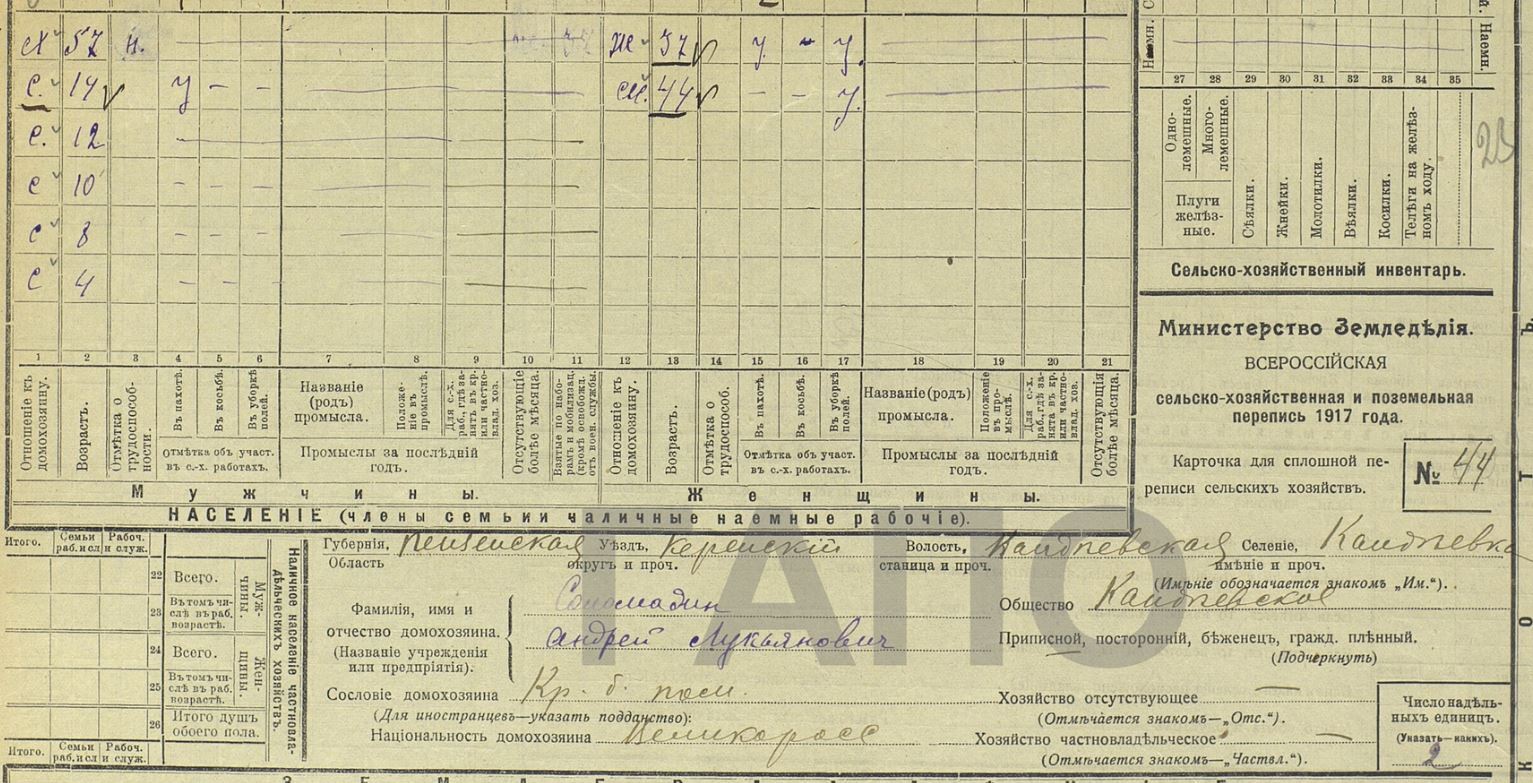 х 57 н. Ж 37 у - у.
с. 14 у - - сн. 44 - - у.
с. 12
с 10 - - -
с 8 - - -
с 4 - - -
1 2 3 4 5 6 7 8 9 10 11 12 13 14 15 16 17 18 19 20 21
Отношеніе къ домохозяину.
Возрастъ.
Отмѣтка о трудоспособ-
ности.
Въ пахотѣ.
Въ косьбѣ.
Въ уборкѣ полей.
Отмѣтка объ участ.
въ с.-х. работахъ.
Названіе
(родъ)
промысла.
Положе-
ніе въ
промыслѣ.
Для с.-х.
раб., гдѣ за-
нятъ въ кр.
или частно-
влад. хоз.
Промыслы за послѣдній
годъ.
Отсутствующіе
болѣе мѣсяца.
Взятые по набо-
рамъ и мобилизац.
(кромѣ освобожд.
отъ воен. службы.
Отношеніе къ
домохозяину.
Возрастъ.
Отмѣтка о
трудоспособ.
Въ пахотѣ.
Въ косьбѣ.
Въ уборкѣ
полей.
Отмѣтка объ участ.
въ с.-х. работахъ.
Названіе (родъ)
промысла.
Положеніе
въ про-
мыслѣ.
Для с.-х.
раб., гдѣ за-
нята въ кр.
или частно-
влад. хоз.
Промыслы за послѣдній
годъ.
Отсутствующія
болѣе мѣсяца.
Мужчины. Женщины.
НАСЕЛЕНІЕ (члены семьи и наличные наемные рабочіе).
Наемн.
Наемн.
27 28 29 30 31 32 33 34 35
Одно-
лемешные.
Много-
лемешные.
Плуги
желѣз-
ные.
Сѣялки.
Жнейки.
Молотилки.
Вѣялки.
Косилки.
Телѣги на желѣз-
номъ ходу.
23
Сельско-хозяйственный инвентарь.
Министерство Земледѣлія.
ВСЕРОССІЙСКАЯ
сельско-хозяйственная и поземельная
перепись 1917 года.
Карточка для сплошной пе-
реписи сельскихъ хозяйствъ.
№ 44
Итого. Семьи раб. и сл Рабоч. и служ.
22 Всего.
23 Въ томъ чи-
слѣ въ раб.
возрастѣ.
Муж-
чины.
24 Всего.
25 Въ томъ чи-
слѣ въ раб.
возрастѣ.
Жен-
щины.
26 Итого душъ
обоего пола.
Итого. Семьи раб. и сл Рабоч. и служ.
Наличное населеніе частновла-
дѣльческихъ хозяйствъ.
Губернія, Пензенская Уѣздъ, Керенскій Волость, Кандиевская Селеніе, Кандиевка
Область округъ и проч. станица и проч. имѣніе и проч.
(Имѣніе обозначается знакомъ „Им.“).
Фамилія, имя и
отчество домохозяина.
(Названіе учрежденія
или предпріятія).
Соломадин
Андрей Лукьянович
Общество Кандиевское
Приписной, посторонній, бѣженец, гражд. плѣнный.
(Подчеркнуть)
Сословіе домохозяина Кр. б. пом.
(Для иностранцевъ—указать подданство):
Національность домохозяина Великоросс
Хозяйство отсутствующее —
(Отмѣчается знакомъ—„Отс.“).
Хозяйство частновладѣльческое —
(Отмѣчается знакомъ—„Частвл.“).
Число надѣль-
ныхъ единицъ.
(Указать—какихъ).
2
ГАПО